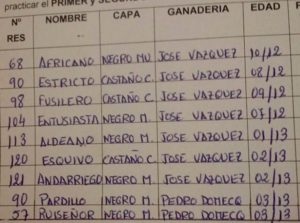 practicar el PRIMER y SEGUN
Nº RES NOMBRE CAPA GANADERIA EDAD
68 AFRICANO NEGRO MU. JOSE VAZQUEZ 10/12
90 ESTRICTO CASTAÑO C. JOSE VAZQUEZ 08/12
98 FUSILERO CASTAÑO C. JOSE VAZQUEZ 09/12
104 ENTUSIASTA NEGRO M. JOSE VAZQUEZ 07/12
113 ALDEANO NEGRO M. JOSE VAZQUEZ 01/13
120 ESQUIVO CASTAÑO C. JOSE VAZQUEZ 02/13
121 ANDARRIEGO NEGRO M. JOSE VAZQUEZ 02/13
90 PARDILLO NEGRO M. PEDRO DOMECQ 03/13
57 RUISEÑOR NEGRO M. PEDRO DOMECQ 03/13